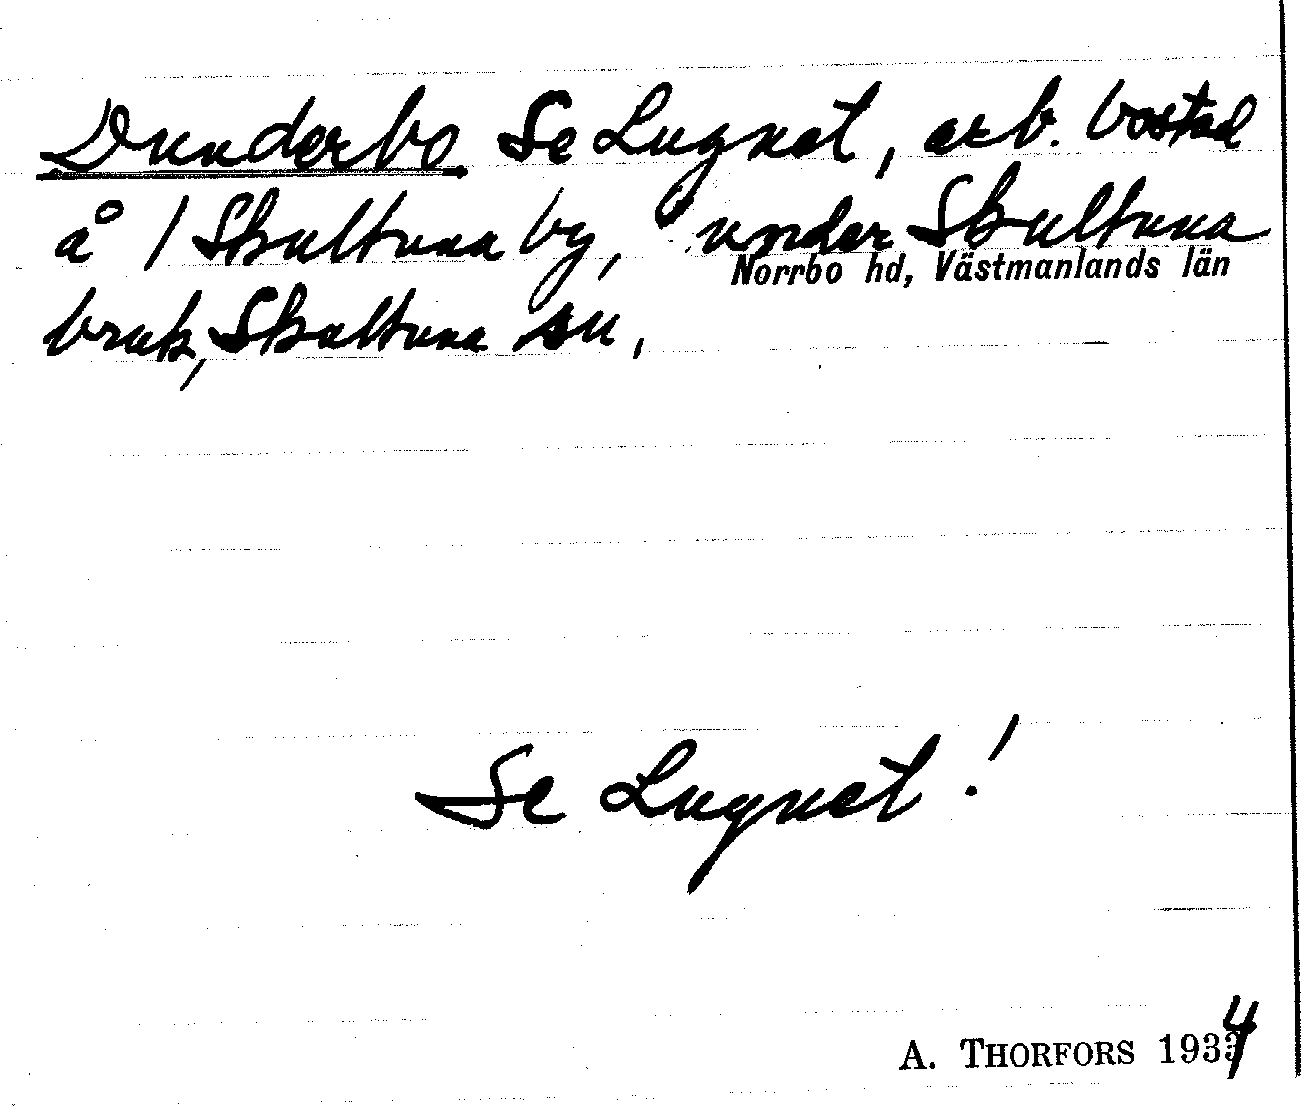 Dunderbo Se Lugnet, arb. bostad
å / Skultuna by, under Skultuna
Norrbo hd, Västmanlands län
bruk, Skultuna sn,
Se Lugnet!
A. THORFORS 1934